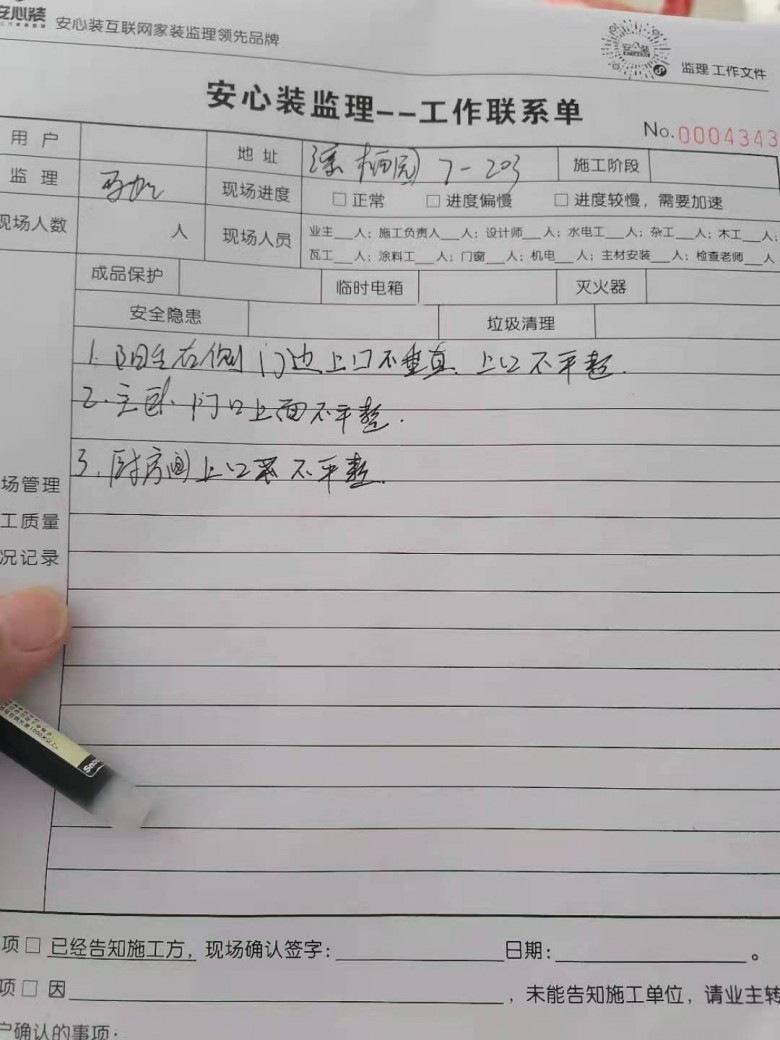 安心装 安心装互联网家装监理领先品牌
监理 工作文件
安心装监理--工作联系单
No.0004343
用户 地址 7-203 施工阶段
监理 现场进度 □ 正常 □ 进度偏慢 □ 进度较慢，需要加速
现场人数 人 现场人员 业主___人；施工负责人___人；设计师___人；水电工___人；杂工___人；木工___人；
瓦工___人；涂料工___人；门窗___人；机电___人；主材安装___人；检查老师___人
成品保护 临时电箱 灭火器
安全隐患 垃圾清理
1. 阳台右侧门边上口不垂直. 上口不平整.
2. 主卧门口上面不平整.
3. 厨房间上口 不平整.
场管理
工质量
况记录
项 □ 已经告知施工方，现场确认签字：____________ 日期：____________。
项 □ 因____________，未能告知施工单位，请业主转
户确认的事项：